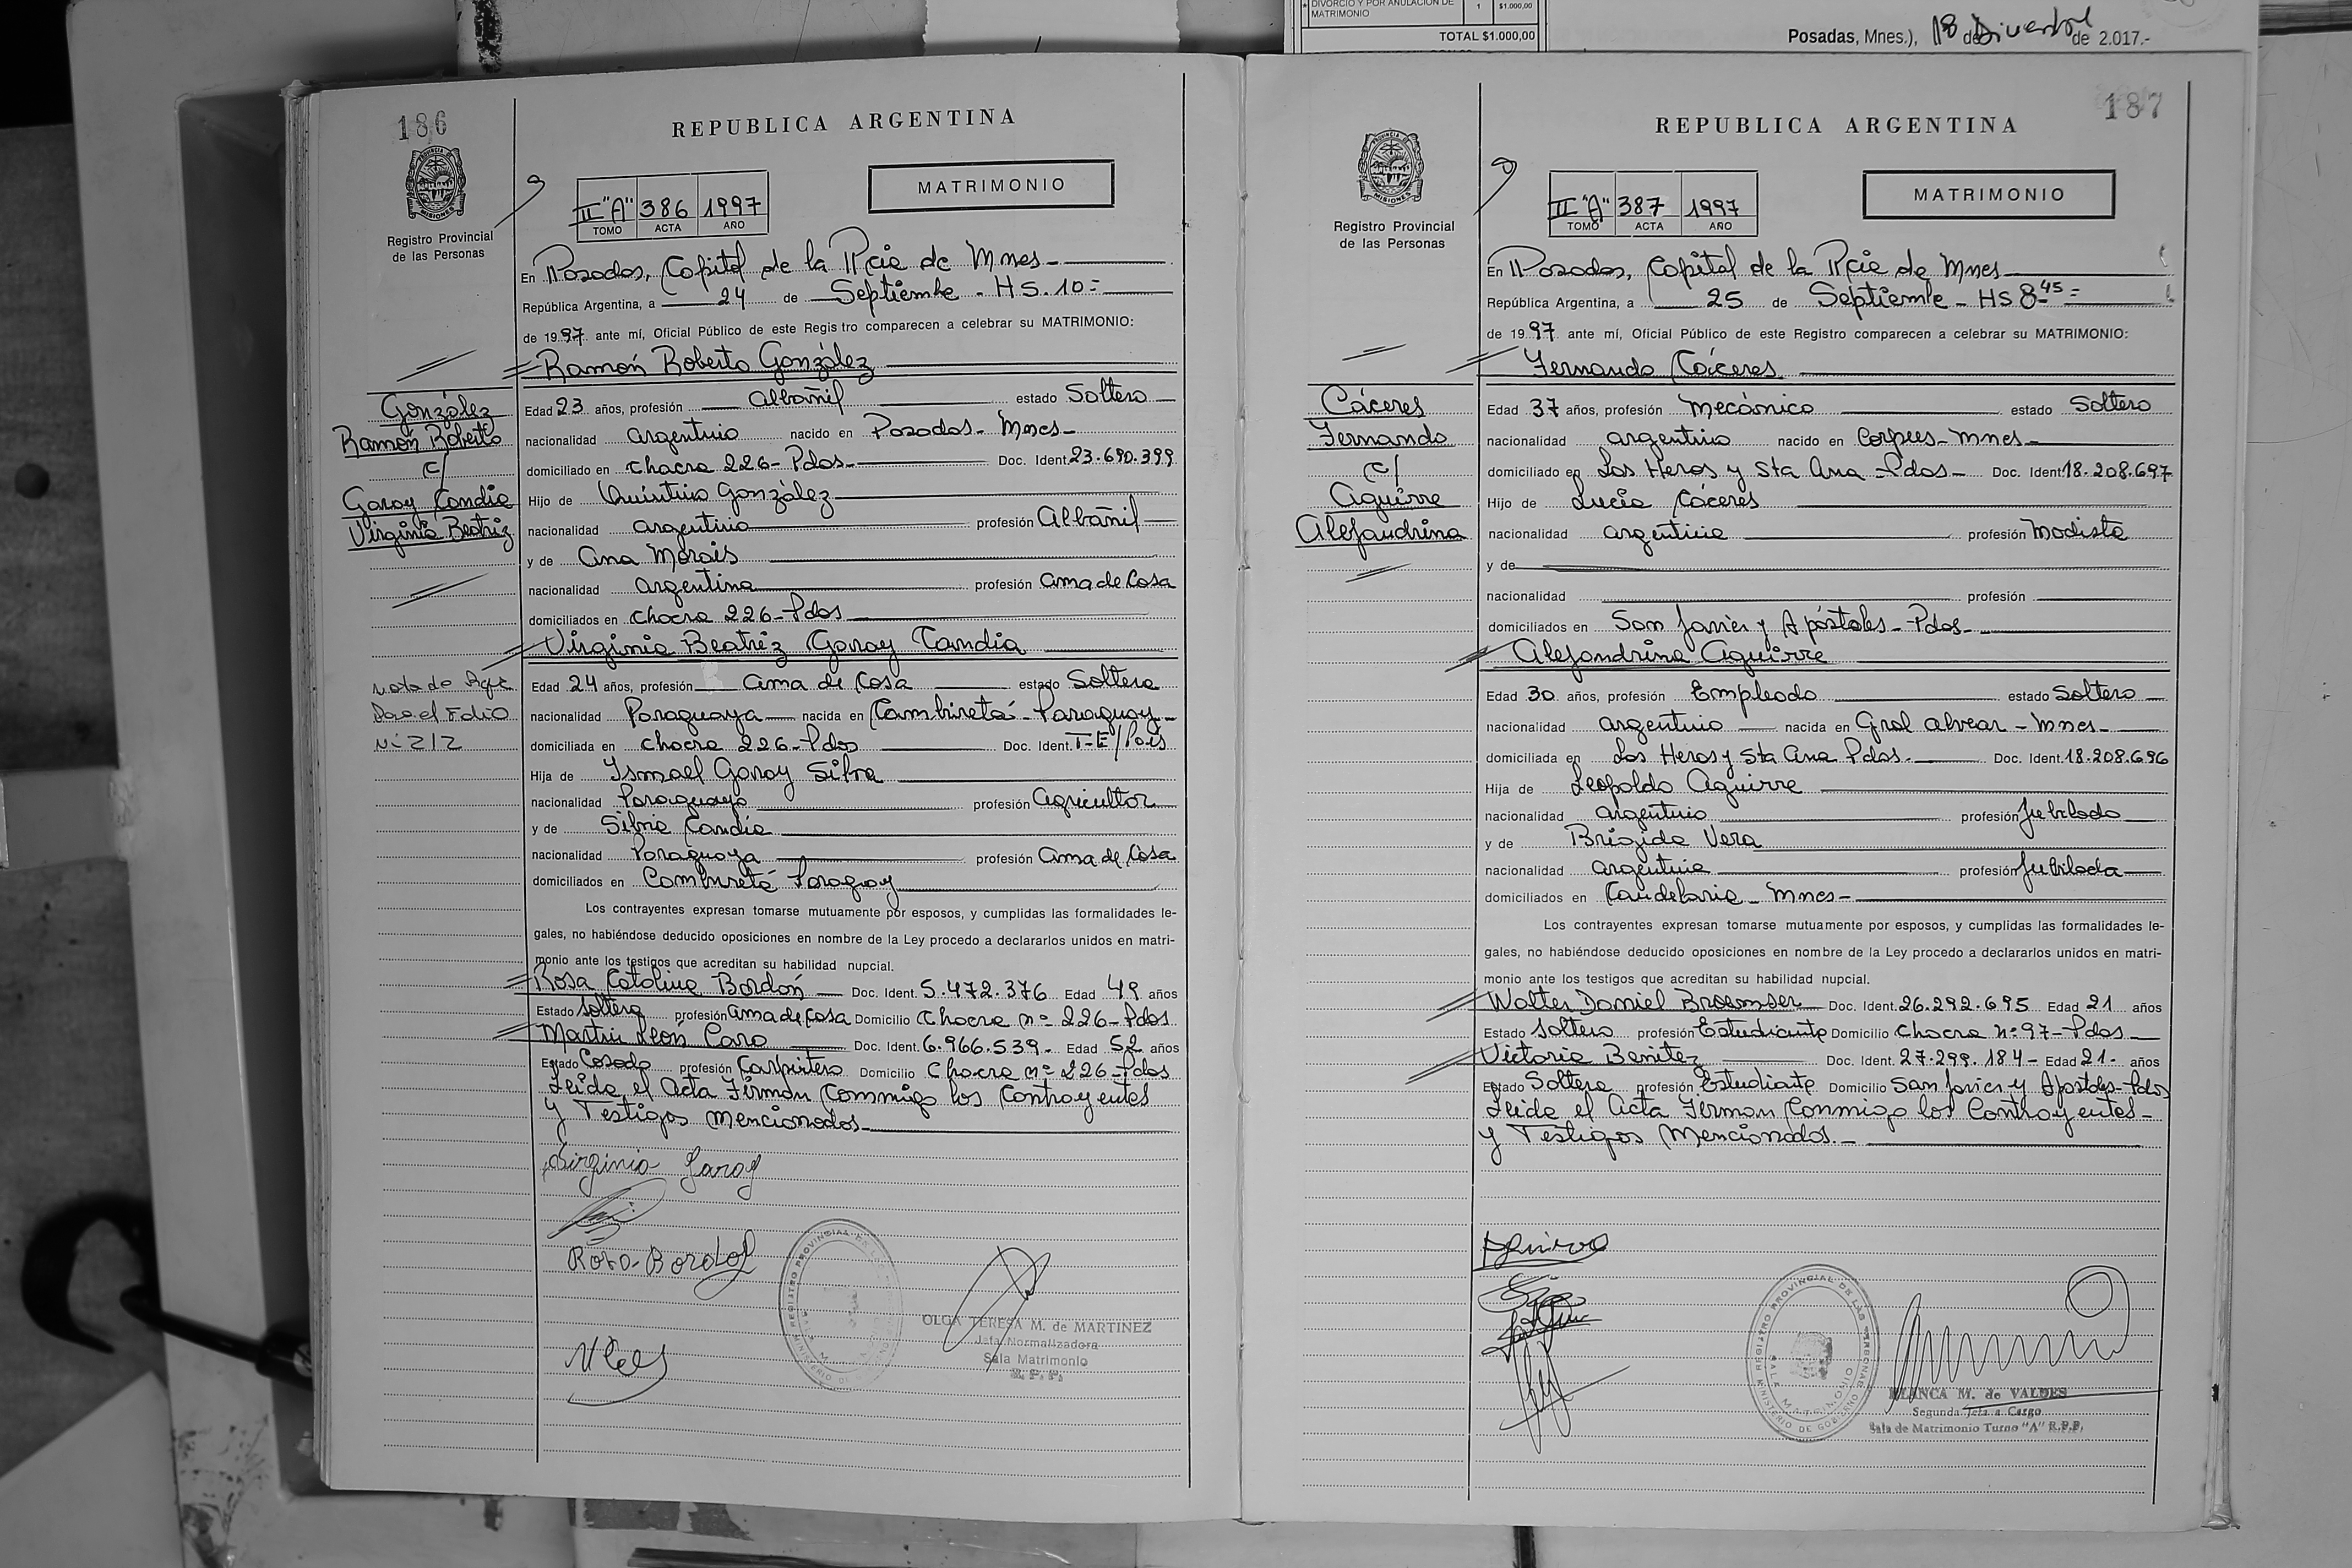 DIVORCIO Y POR ANULACION DE
MATRIMONIO
1
$1.000,00
TOTAL $1.000,00
Posadas, Mnes.), 18 de de 2.017.-
186
REPUBLICA ARGENTINA
Registro Provincial
de las Personas
II "A" 386 1997
TOMO ACTA AÑO
MATRIMONIO
En Posadas, Capital de la Pcia de Mnes-
República Argentina, a 24 de Septiembre - HS. 10=
de 1997 ante mí, Oficial Público de este Registro comparecen a celebrar su MATRIMONIO:
Ramón Roberto González
González
Ramón Roberto
c/
Garay Candia
Virginia Beatriz
Edad 23 años, profesión Albañil estado Soltero
nacionalidad argentino nacido en Posadas- Mnes-
domiciliado en Chacra 226- Pdas- Doc. Ident. 23.690.399
Hijo de Quintino González
nacionalidad argentino profesión Albañil
y de Ana Morais
nacionalidad argentina profesión ama de Casa
domiciliados en Chacra 226-Pdas
Virginia Beatriz Garay Candia
Nota de
el Folio
Nº 212
Edad 24 años, profesión ama de Casa estado Soltera
nacionalidad Paraguaya nacida en Cambiretá- Paraguay-
domiciliada en Chacra 226-Pdas Doc. Ident. T-E/País
Hija de Ismael Garay Silva
nacionalidad Paraguayo profesión agricultor
y de Silvia Candia
nacionalidad Paraguaya profesión ama de Casa
domiciliados en Cambiretá Paraguay
Los contrayentes expresan tomarse mutuamente por esposos, y cumplidas las formalidades le-
gales, no habiéndose deducido oposiciones en nombre de la Ley procedo a declararlos unidos en matri-
monio ante los testigos que acreditan su habilidad nupcial.
Rosa Catalina Bordón Doc. Ident. 5.472.376 Edad 49 años
Estado Soltera profesión ama de Casa Domicilio Chacra nº 226-Pdas
Martín León Caro Doc. Ident. 6.966.539- Edad 52 años
Estado Casado profesión Carpintero Domicilio Chacra nº 226-Pdas
Leída el Acta Firman Conmigo los Contrayentes
y Testigos Mencionados-
Virginia Garay
Rosa Bordon
OLGA TERESA M. de MARTINEZ
Jefa Normalizadora
Sala Matrimonio
R.P.P.
187
REPUBLICA ARGENTINA
Registro Provincial
de las Personas
II "A" 387 1997
TOMO ACTA AÑO
MATRIMONIO
En Posadas, Capital de la Pcia de Mnes
República Argentina, a 25 de Septiembre - HS 8 45=
de 1997 ante mí, Oficial Público de este Registro comparecen a celebrar su MATRIMONIO:
Fernando Cáceres
Cáceres
Fernando
c/
Aguirre
Alejandrina
Edad 37 años, profesión Mecánico estado Soltero
nacionalidad argentino nacido en Corpus-Mnes-
domiciliado en Los Heros y Sta Ana -Pdas- Doc. Ident. 18.208.697
Hijo de Lucía Cáceres
nacionalidad argentina profesión Modista
y de
nacionalidad profesión
domiciliados en San Javier y Apóstoles-Pdas-
Alejandrina Aguirre
Edad 30 años, profesión Empleada estado Soltera
nacionalidad argentina nacida en Gral Alvear - Mnes-
domiciliada en Los Heros y Sta Ana Pdas- Doc. Ident. 18.208.696
Hija de Leopoldo Aguirre
nacionalidad argentino profesión Jubilado
y de Brígida Vera
nacionalidad argentina profesión Jubilada
domiciliados en Candelaria - Mnes-
Los contrayentes expresan tomarse mutuamente por esposos, y cumplidas las formalidades le-
gales, no habiéndose deducido oposiciones en nombre de la Ley procedo a declararlos unidos en matri-
monio ante los testigos que acreditan su habilidad nupcial.
Walter Daniel Doc. Ident. 26.292.695 Edad 21 años
Estado Soltero profesión Estudiante Domicilio Chacra nº 97-Pdas-
Victoria Benítez Doc. Ident. 27.299.184- Edad 21- años
Estado Soltera profesión Estudiante Domicilio San Javier y Apóstoles-Pdas
Leída el Acta Firman Conmigo los Contrayentes-
y Testigos Mencionados.-
REGISTRO PROVINCIAL DE LAS PERSONAS
MINISTERIO DE GOBIERNO
BLANCA M. de VALDES
Segunda Jefa a Cargo
Sala de Matrimonio Turno "A" R.P.P.